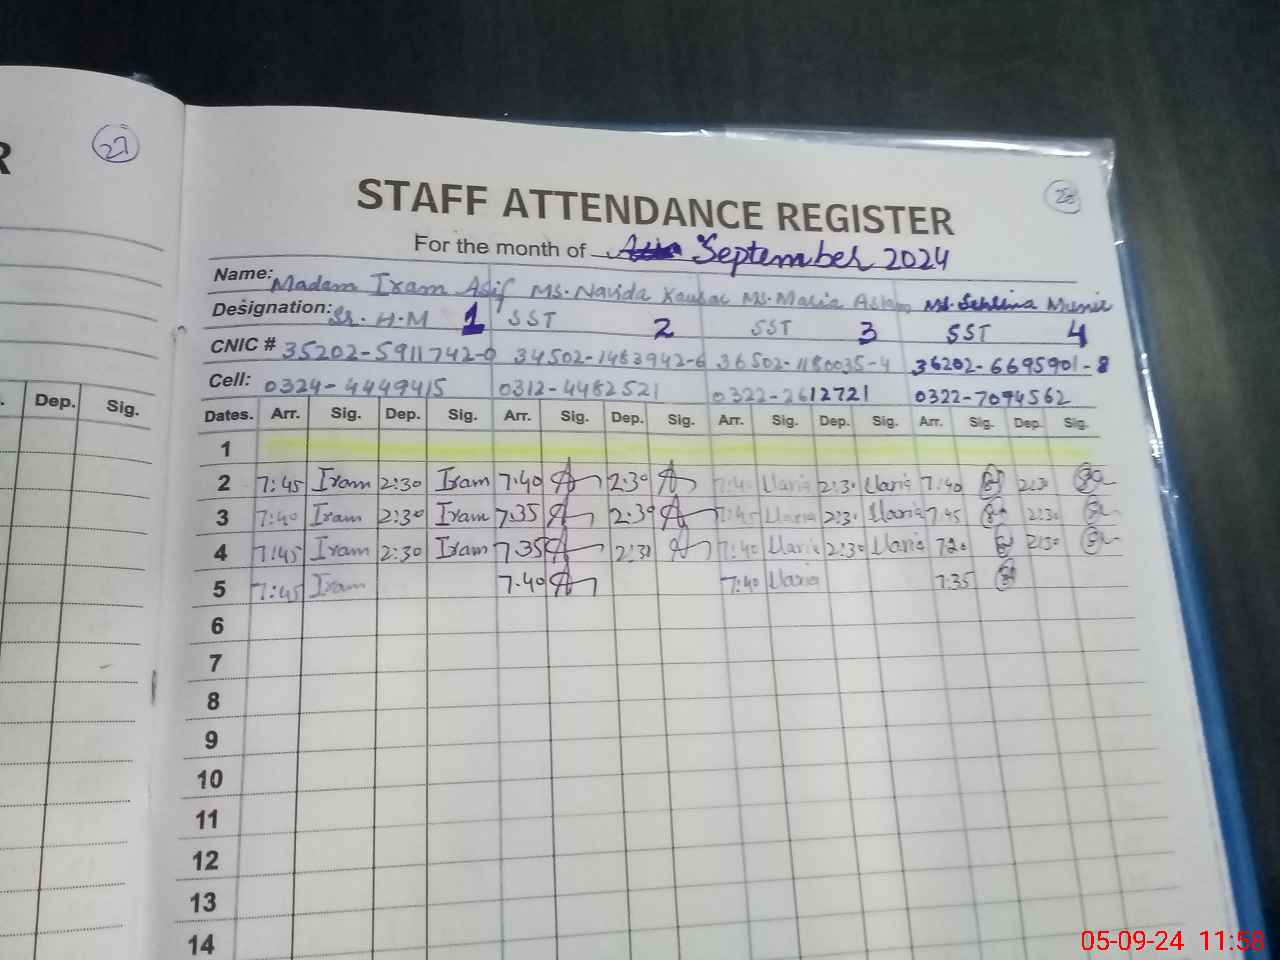 R
27
28
STAFF ATTENDANCE REGISTER
For the month of September 2024
Name: Madam Iram Asif Ms. Navida Kausar Ms. Maria Aslam Ms. Munir
Designation: Sr. H.M 1 SST 2 SST 3 SST 4
CNIC # 35202-5911742-0 34502-1483942-6 36502-1180035-4 36202-6695901-8
Cell: 0324-4449415 0312-4482521 0322-2612721 0322-7094562
Dep. Sig.
Dates. Arr. Sig. Dep. Sig. Arr. Sig. Dep. Sig. Arr. Sig. Dep. Sig. Arr. Sig. Dep. Sig.
1
2 7:45 Iram 2:30 Iram 7.40 2:30 7:40 Maria 2:30 Maria 7:40 2:30
3 7:40 Iram 2:30 Iram 7.35 2:30 7:45 Maria 2:30 Maria 7:45 2:30
4 7:45 Iram 2:30 Iram 7.35 2:30 7:40 Maria 2:30 Maria 7:20 2:30
5 7:45 Iram 7.40 7:40 Maria 7:35
6
7
8
9
10
11
12
13
14
05-09-24 11:58